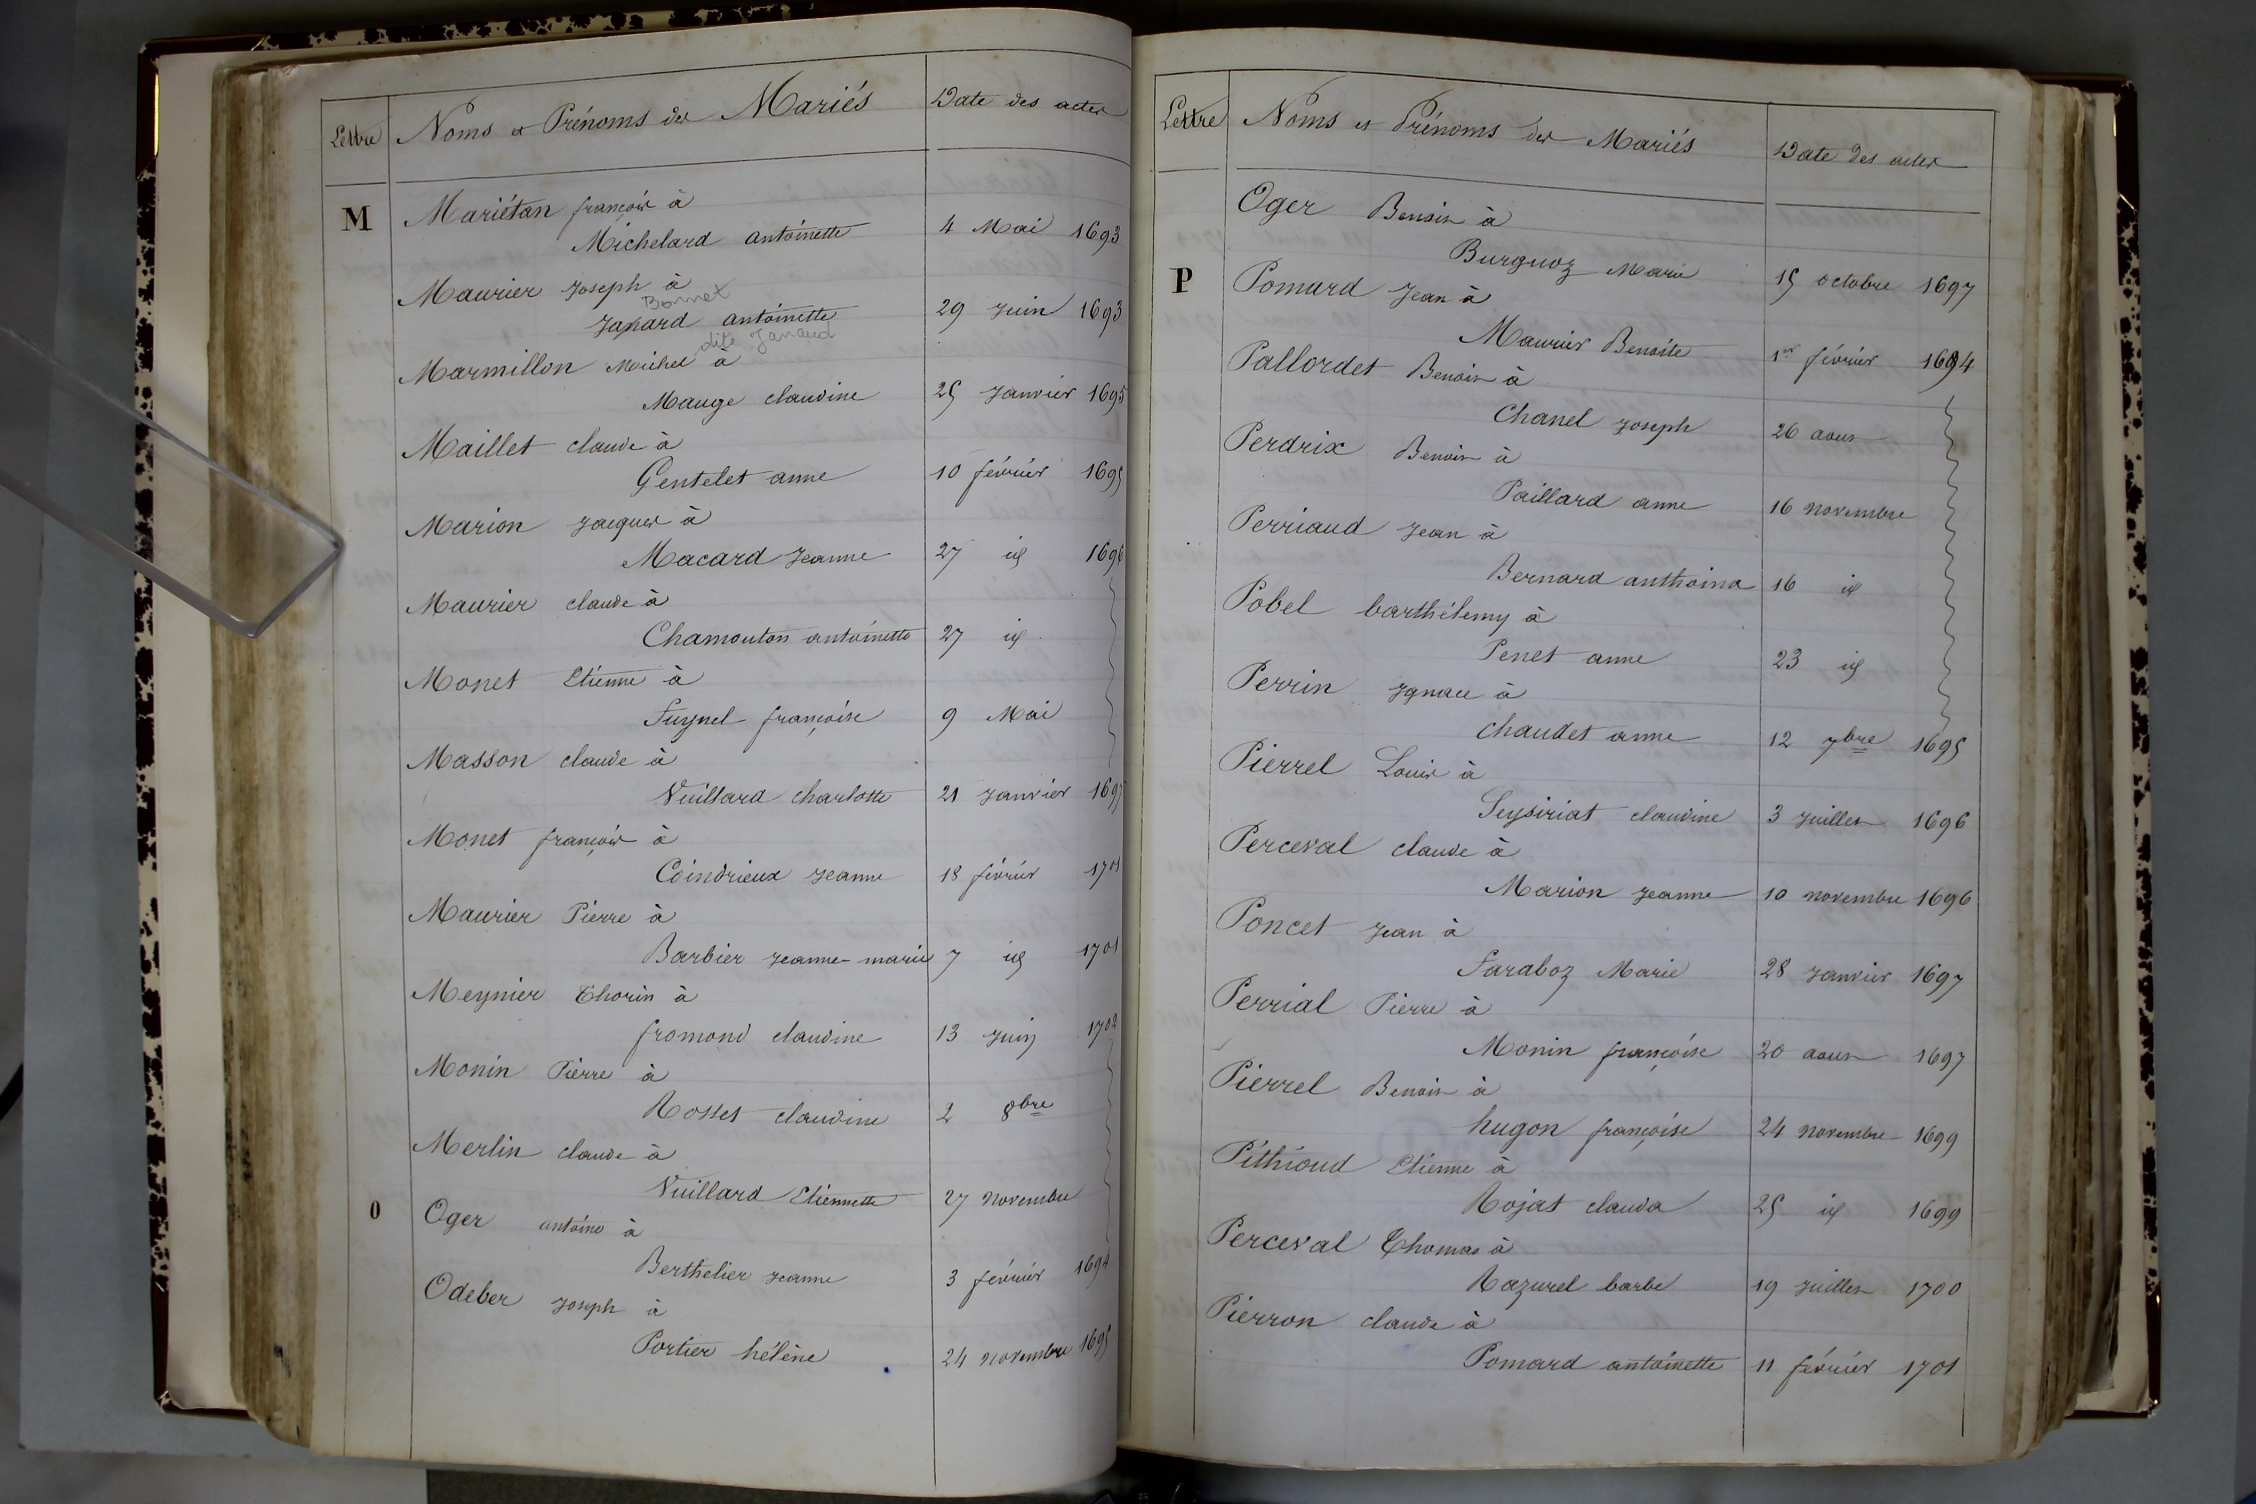 Lettre Noms et Prénoms des Mariés Date des actes
M Mariétan françois à
Michelard antoinette 4 Mai 1693
Maurier Joseph à
Bonnet
Janard antoinette 29 Juin 1693
dite Janaud
Marmillon Michel à
Mauge claudine 25 Janvier 1695
Maillet claude à
Gentelet anne 10 février 1695
Marion Jacques à
Macard Jeanne 27 id 1696
Maurier claude à
Chamouton antoinette 27 id
Monet Etienne à
Fuynel françoise 9 Mai
Masson claude à
Vuillard charlotte 21 Janvier 1697
Monet françois à
Coindrieux Jeanne 18 février 1701
Maurier Pierre à
Barbier Jeanne-marie 7 id 1701
Meynier Thorin à
fromond claudine 13 Juin 1702
Monin Pierre à
Rosset claudine 2 8bre
Merlin claude à
Vuillard Etiennette 27 novembre
O Oger antoine à
Berthelier Jeanne 3 février 1694
Odeber Joseph à
Portier hélène 24 novembre 1695
Lettre Noms et Prénoms des Mariés Date des actes
Oger Benoit à
Burguoz Marie 15 octobre 1697
P Pomard Jean à
Maurier Benoite 1er février 1694
Pallordet Benoit à
Chanel Joseph 26 aout
Perdrix Benoit à
Paillard anne 16 novembre
Perriaud Jean à
Bernard anthoina 16 id
Pobel barthélemy à
Penet anne 23 id
Perrin Ignace à
chaudet anne 12 7bre 1695
Pierrel Louis à
Seysiriat claudine 3 Juillet 1696
Perceval claude à
Marion Jeanne 10 novembre 1696
Poncet Jean à
Faraboz Marie 28 Janvier 1697
Perrial Pierre à
Monin françoise 20 aout 1697
Pierrel Benoit à
hugon françoise 24 novembre 1699
Pithioud Etienne à
Rojat clauda 25 id 1699
Perceval Thomas à
Razurel barbe 19 Juillet 1700
Pierron claude à
Pomard antoinette 11 février 1701